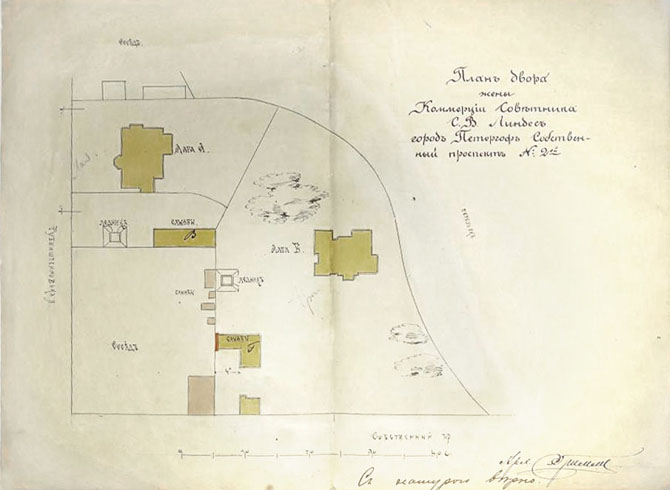 Планъ двора
жены
Коммерціи Совѣтника
С. Ѳ Линдесъ
городъ Петергофъ Собствен-
ный проспектъ № 2й
Сосѣдъ.
Дата А
ледникъ
службы.
В
Дата Б.
ледникъ
службы
Сосѣдъ
службы
Г
Собственный пр
Съ натурою вѣрно.